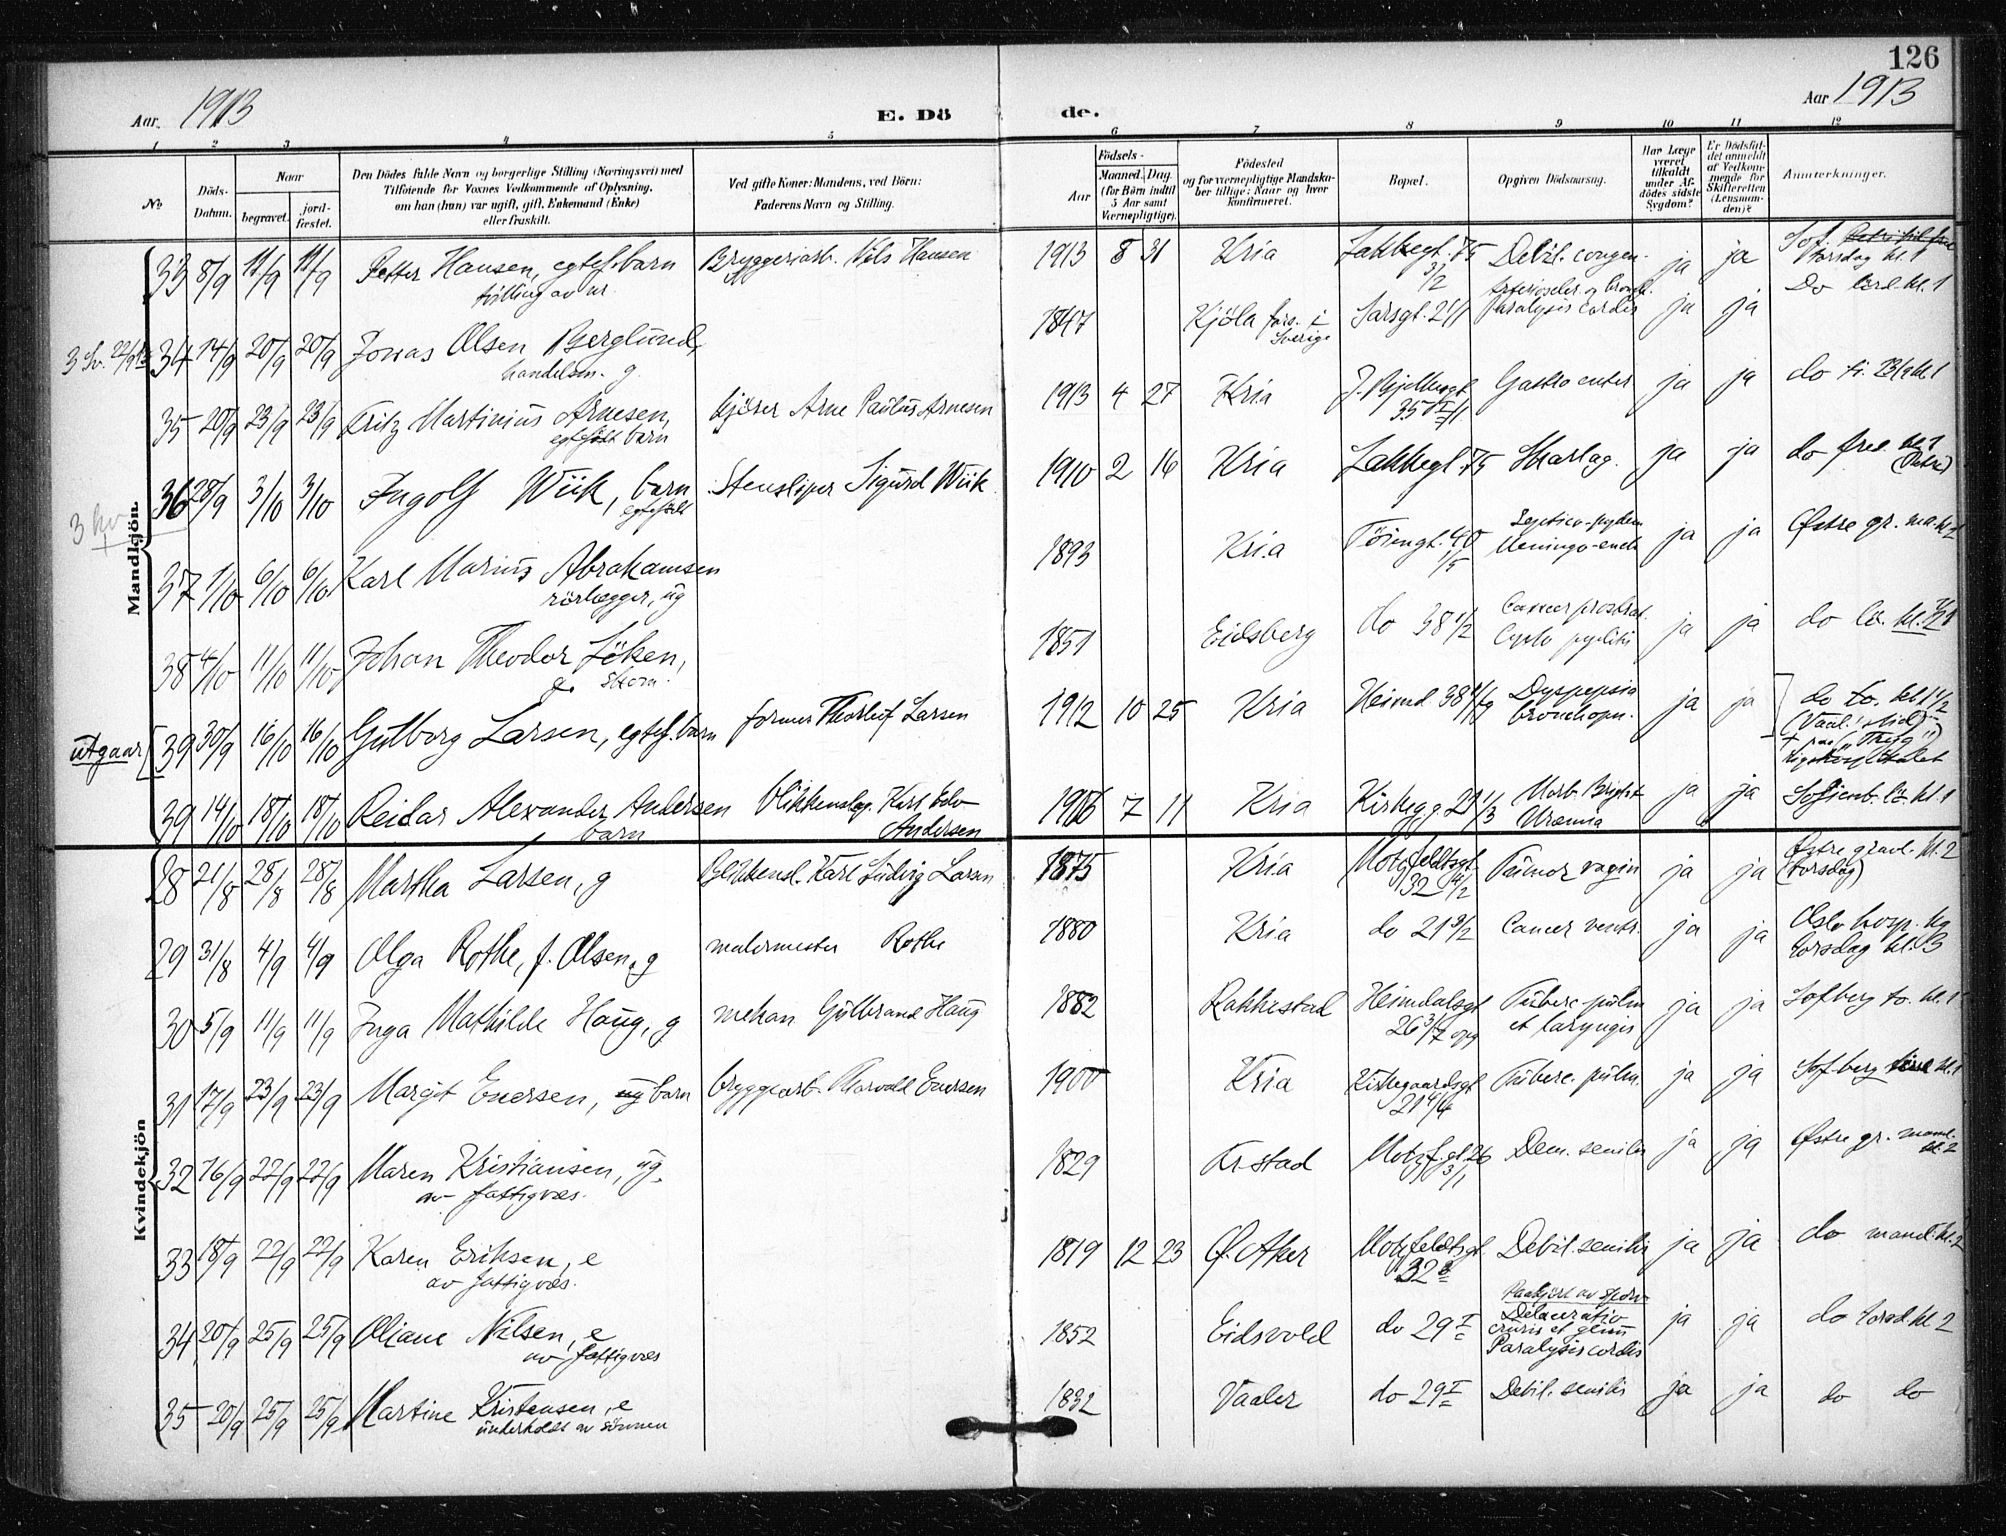 126
Aar 1913
E. Dö
de.
Aar 1913
1 2 3 4 5 6 7 8 9 10 11 12
No
Döds-Datum.
Naar
begravet. jord-fæstet.
Den Dödes fulde Navn og borgerlige Stilling (Næringsvei) med
Tilföiende for Voxnes Vedkommende af Oplysning,
om han (hun) var ugift, gift, Enkemand (Enke)
eller fraskilt.
Ved gifte Koner: Mandens, ved Börn:
Faderens Navn og Stilling.
Födsels-
Aar
Maaned. Dag.
(for Börn indtil
5 Aar samt
Værnepligtige).
Födested
og for værnepligtige Mandska-
ber tillige: Naar og hvor
konfirmeret.
Bopæl.
Opgiven Dödsaarsag.
Har Læge
været
tilkaldt
under Af-
dödes sidste
Sygdom?
Er Dödsfal-
det anmeldt
af Vedkom-
mende for
Skifteretten
(Lensman-
den)?
Anmærkninger.
Mandkjön.
33 8/9 11/9 11/9 Petter Hansen, egtef. barn Bryggeriarb. Nils Hansen 1913 8 31 Kria Lakkegt. 75 Debil. congen. ja ja Sof.
tvilling av nr. 3/2 torsdag kl. 1
3 Sv. 22/9 13 34 14/9 20/9 20/9 Jonas Olsen Berglund, 1847 Kjöla i Sverige Sarsgt. 21/1 Arterioscler. og bronch. Paralysis cordis ja ja Do lörd. kl. 1
handelsm. g.
35 20/9 23/9 23/9 Fritz Martinius Arnesen, kjörer Arne Paulus Arnesen 1913 4 27 Kria J. Bjelkesgt. 35 Gastro enter ja ja do ti. 23/9 kl. 1
egtefödt barn
3 kv 36 28/9 3/10 3/10 Ingolf Wiik, barn Stensliper Sigurd Wiik 1910 2 16 Kria Lakkegt. 75 Skarlag. ja ja do fred. kl. 1
egtefödt
37 1/10 6/10 6/10 Karl Marius Abrahamsen 1893 Kria Töiengt. 40 1/5 ja ja Östre gr. ma. kl. 2
rörlægger, ug
38 4/10 11/10 11/10 Johan Theodor Löken, 1851 Eidsberg do 38 1/2 Cancer prostat. ja ja do lö.
g. skom.
utgaar [39 30/9 16/10 16/10 Gulborg Larsen, egtef. barn former Thorleif Larsen 1912 10 25 Kria Heimd 38 Dyspepsia bronchopn. ja ja do to. kl. 1 1/2
Rigshospitalet
39 14/10 18/10 18/10 Reidar Alexander Andersen Blikkenslag. Karl Edv. Andersen 1906 7 11 Kria Kirkegg. 21 1/3 Morb. Brightii Uræmia ja ja Sofienb. lö kl. 1
barn
Kvindekjön
28 21/8 28/8 28/8 Martha Larsen, g Blikkensl. Karl Ludvig Larsen 1875 Kria Motzfeldtsgt. 32 4/2 Tumor vagin ja ja Östre gravl. kl. 2
(torsdag)
29 31/8 4/9 4/9 Olga Rothe, f. Olsen, g malermester Rothe 1880 Kria do 21 2/2 Cancer ventr. ja ja Oslo hosp. kg
torsdag kl. 3
30 5/9 11/9 11/9 Inga Mathilde Haug, g mekan Gulbrand Haug 1882 Rakkestad Heimdalsgt 26 3/7 opg Tuberc. pulm et laryngis ja ja Sofberg to. kl. 1
31 17/9 23/9 23/9 Margit Enersen, ug barn bryggearb. Thorvald Enersen 1900 Kria Kirkegaardsgt 21 4/4 Tuberc. pulm. ja ja Sofberg kl. 1
32 16/9 22/9 22/9 Maren Kristiansen, ug. 1829 Kr.stad Motzf.gt. 26 3/1 Dem. senilis ja ja Östre gr. mand. kl. 2
av fattigvæs.
33 18/9 22/9 22/9 Karen Eriksen, e 1819 12 23 Ö. Aker Motzfeldtsgt. 32 Debil. senilis ja ja do mand. kl. 2
av fattigvæs.
34 20/9 25/9 25/9 Oliane Nilsen, e 1852 Eidsvold do 29 I Paakjört av sporv. Delaceratio cruris et genu Paralysis cordis ja ja do torsd. kl 2
av fattigvæs
35 20/9 25/9 25/9 Martine Kristensen, e 1832 Vaaler do 29 I Debil. senilis ja ja do do
underholdt av sönnen